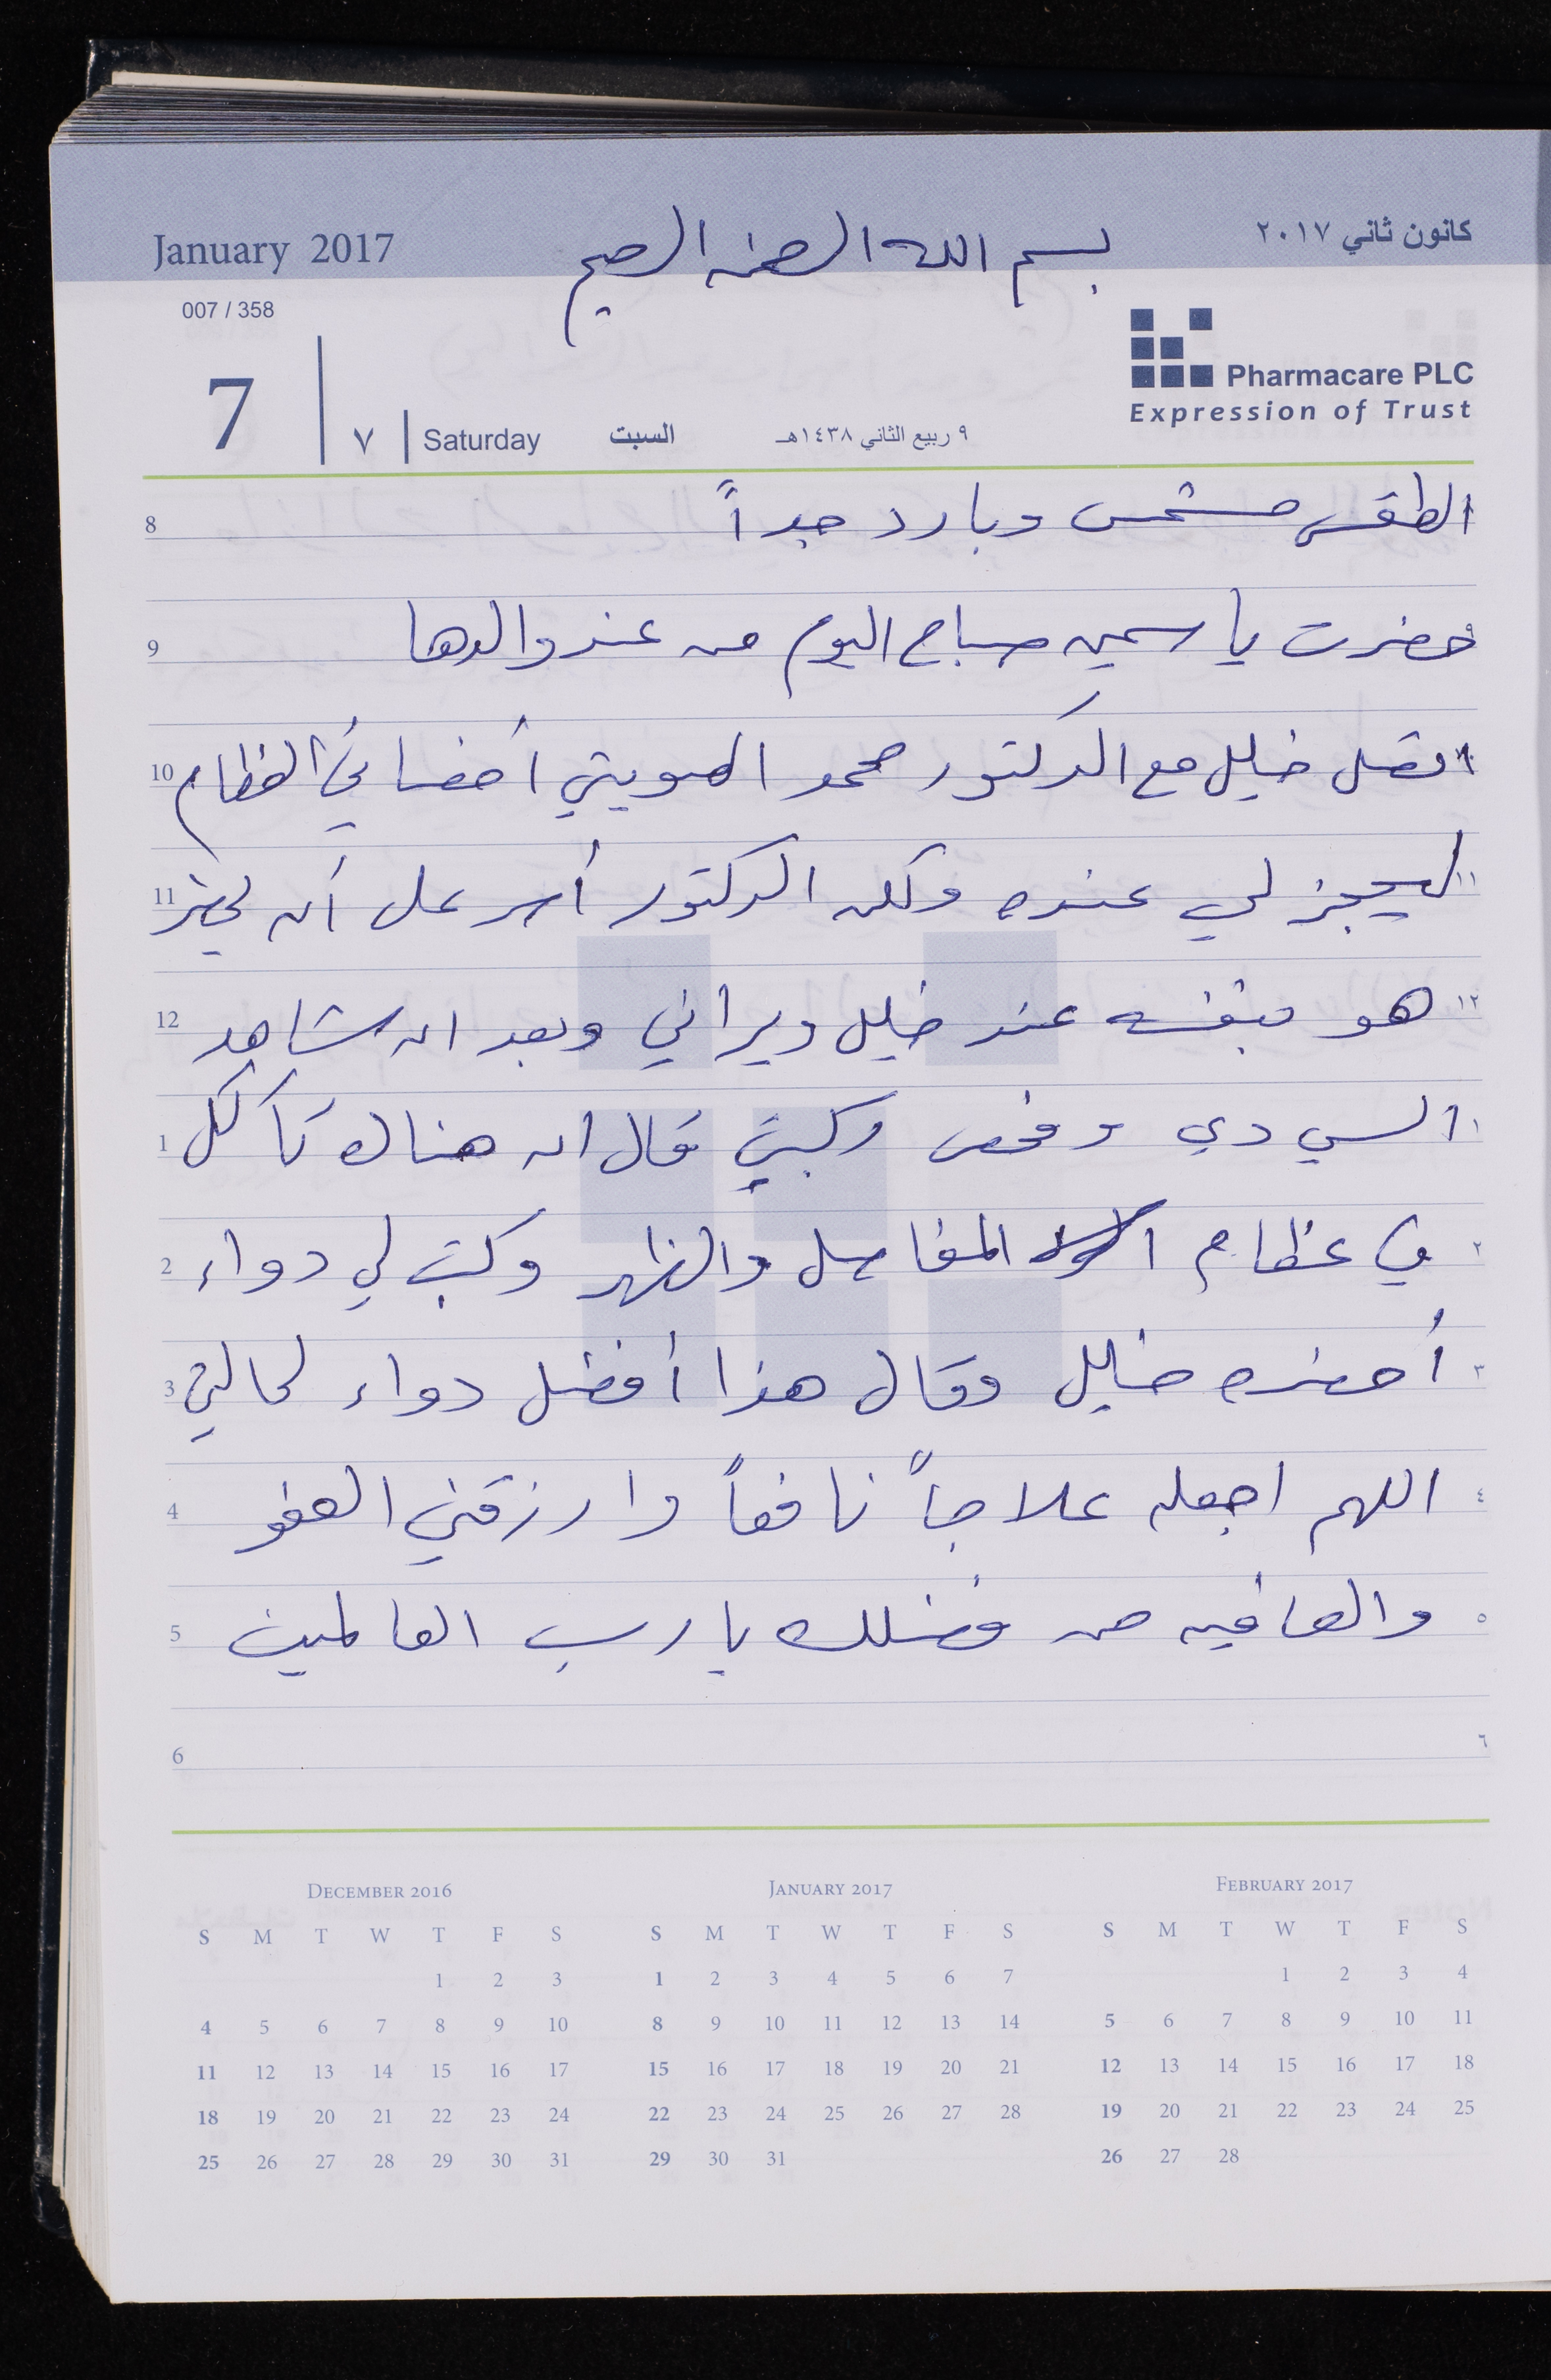 January 2017
بسم الله الرحمن الرحيم
كانون ثاني ٢٠١٧
007 / 358
Pharmacare PLC
Expression of Trust
7 ٧ Saturday السبت ٩ ربيع الثاني ١٤٣٨هـ
8 الطقس مشمس وبارد جداً
9 حضرت ياسمين صباح اليوم من عند والدها ٩
10 اتصل خليل مع الدكتور محمد أخصائي العظام ١٠
11 ليحجز لي عنده ولكن الدكتور أصر على أن يحضر ١١
12 هو بنفسه عند خليل ويراني وبعد ان شاهد ١٢
1 السي دي وفحص ركبتي قال ان هناك تأكل ١
2 في عظام المفاصل والظهر وكتب لي دواء ٢
3 أحضره خليل وقال هذا أفضل دواء لحالتي ٣
4 اللهم اجعله علاجاً نافعاً وارزقني العفو ٤
5 والعافيه من فضلك يا رب العالمين ٥
6 ٦
December 2016
S M T W T F S
1 2 3
4 5 6 7 8 9 10
11 12 13 14 15 16 17
18 19 20 21 22 23 24
25 26 27 28 29 30 31
January 2017
S M T W T F S
1 2 3 4 5 6 7
8 9 10 11 12 13 14
15 16 17 18 19 20 21
22 23 24 25 26 27 28
29 30 31
February 2017
S M T W T F S
1 2 3 4
5 6 7 8 9 10 11
12 13 14 15 16 17 18
19 20 21 22 23 24 25
26 27 28